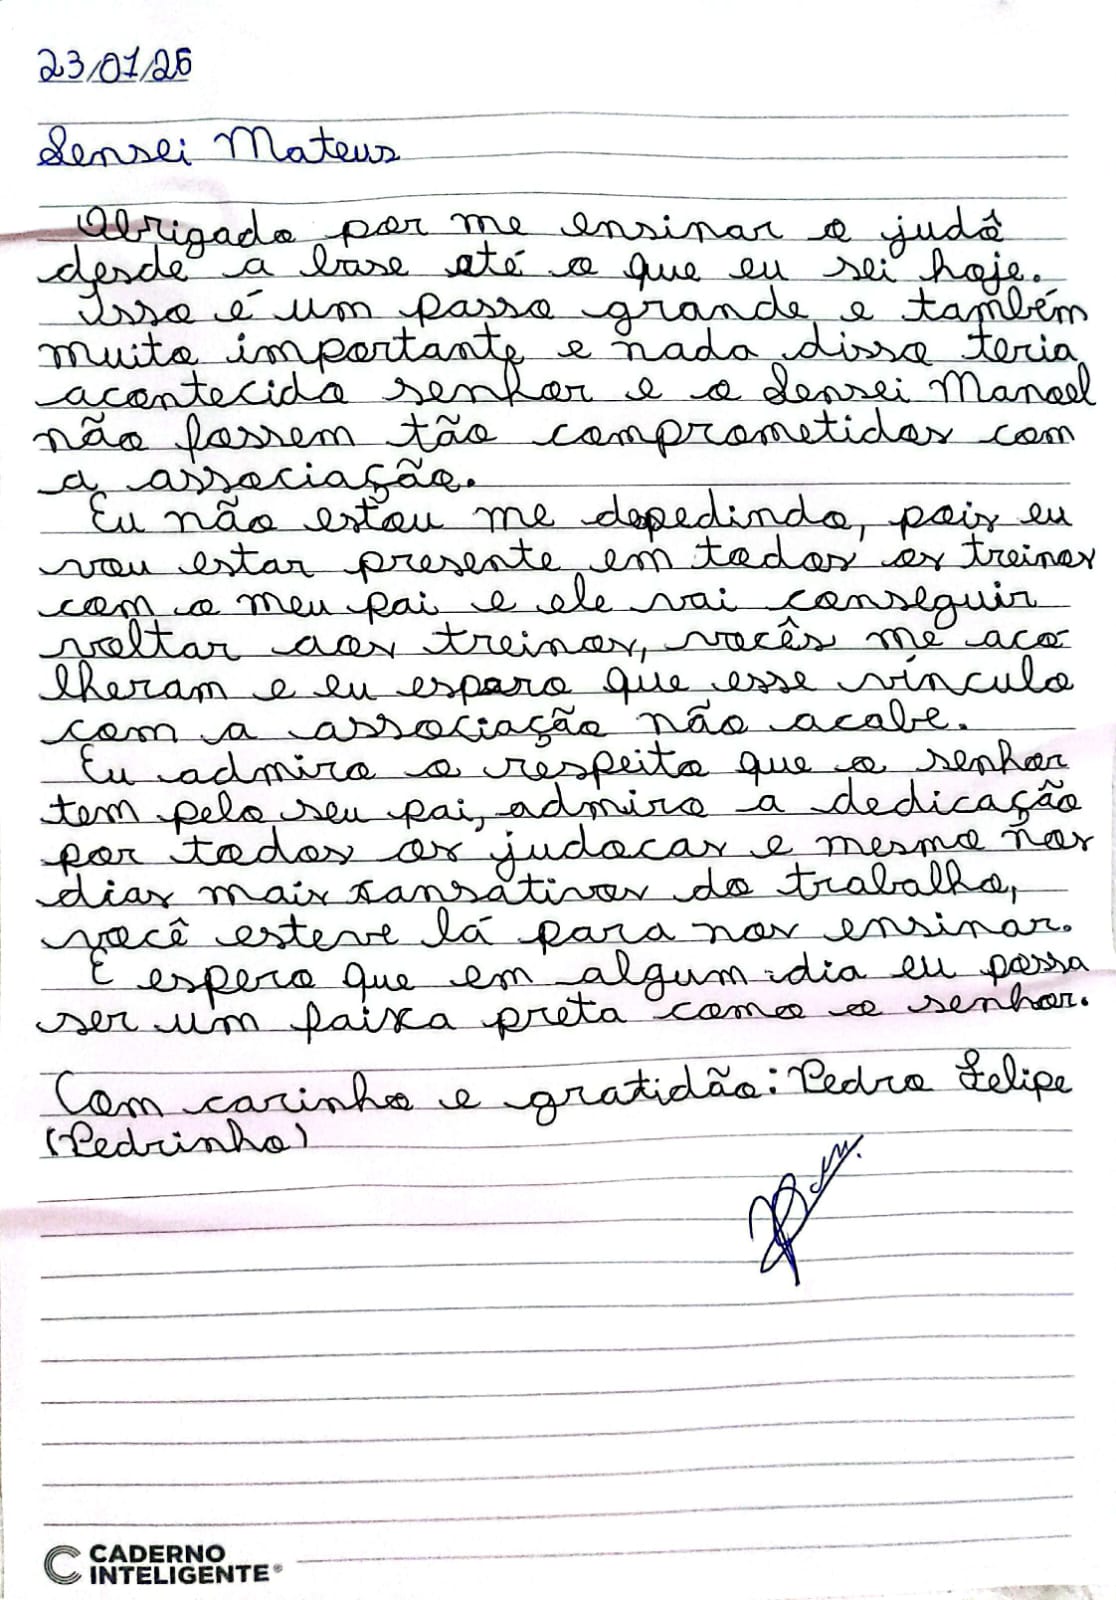 23/01/26
Sensei Mateus
Obrigado por me ensinar o judô
desde a base até o que eu sei hoje.
Isso é um passo grande e também
muito importante e nada disso teria
acontecido senhor e o Sensei Manoel
não fossem tão comprometidos com
a associação.
Eu não estou me depedindo, pois eu
vou estar presente em todos os treinos
com o meu pai e ele vai conseguir
voltar aos treinos, vocês me aco
lheram e eu espero que esse vínculo
com a associação não acabe.
Eu admiro o respeito que o senhor
tem pelo seu pai, admiro a dedicação
por todos os judocas e mesmo nos
dias mais cansativos do trabalho,
você esteve lá para nos ensinar.
E espero que em algum dia eu possa
ser um faixa preta como o senhor.
Com carinho e gratidão: Pedro Felipe
(Pedrinho)
CADERNO
INTELIGENTE®